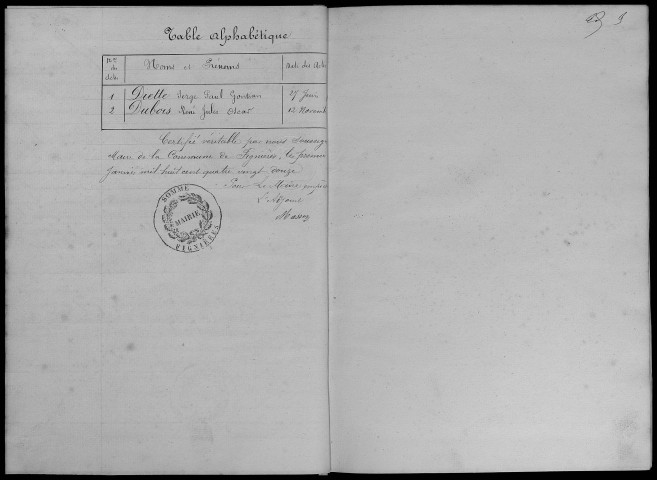 Table Alphabétique
Nos des Actes
Noms et Prénoms
Date des Acte
1 Diette Serge Paul 27 Juin
2 Dubois René Jules Oscar 12 Novemb
Certifié véritable par nous soussigné
Maire de la Commune de Fignières, le premier
Janvier mil huit cent quatre vingt douze
Pour Le Maire empêché
L'Adjoint
SOMME
MAIRIE
FIGNIÈRES